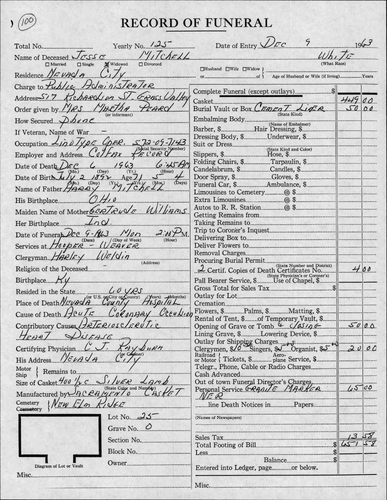 (100)
RECORD OF FUNERAL
Total No. Yearly No. 125 Date of Entry Dec 9 1963
Name of Deceased Jesse Mitchell White
Married Single Widowed Divorced (What Race)
Residence Nevada City Husband Wife Widow of Age of Husband or Wife (if living) Years
Charge to Public Administrator
Address 517 Richardson St. Grass Valley
Order given by Mrs Martha Heard
(or informant)
How Secured Phone
If Veteran, Name of War -
Occupation Linotype Oper. 572-09-7143
(Social Security Number)
Employer and Address Colfax Record
Date of Death Dec 6 1963 6:45 PM
Date of Birth July 2 1892 Age 71 5 4
Name of Father Harry Mitchell
His Birthplace Ohio
Maiden Name of Mother Gertrude Williams
Her Birthplace Ind
Date of Funeral Dec 9-1963 Mon 2:00 PM
Services at Hooper-Weaver
(Address)
Clergyman Harley Weldin
Religion of the Deceased -
Birthplace Ky
Resided in the State 60 yrs
Place of Death Nevada County Hospital
Cause of Death Acute Coronary Occlusion
Contributory Causes Arteriosclerotic
Heart Disease
Certifying Physician G. J. Rayburn
His Address Nevada City
Motor
Ship Remains to
Size of Casket Silver Lamb
Manufactured by Sacramento Casket
Cemetery New Elm Ridge
Lot No. 25
Grave No. 0
Section No.
Block No.
Owner
Diagram of Lot or Vault
Complete Funeral (except outlays) $
Casket
Burial Vault or Box Cement Liner 50 00
(State Kind)
Embalming Body
(Name of Embalmer)
Barber, $ Hair Dressing, $
Dressing Body, $ Underwear, $
Suit or Dress
(State Kind and Color)
Slippers, $ Hose, $
Folding Chairs, $ Tarpaulin, $
Candelabrum, $ Candles, $
Door Spray, $ Gloves, $
Funeral Car, $ Ambulance, $
Limousines to Cemetery @ $
Extra Limousines @ $
Autos to R. R. Station @ $
Getting Remains from
Taking Remains to
Trip to Coroner's Inquest
Delivering Box to
Deliver Flowers to
Removal Charges
Procuring Burial Permit
(State Number and District)
2 Certif. Copies of Death Certificates No. 4 00
(State Physician's or Coroner's)
Pall Bearer Service, $ Use of Chapel, $
Gross Total for Sales Tax $
Outlay for Lot
Cremation
Outlay for Flowers, $ Palms, $
Matting, $
Rental of Tent, $ of Temporary Vault, $
Opening of Grave or Tomb & Closing 50 00
Lining Grave, $ Lowering Device, $
Clergymen, $ Singers, $ Organist, $ 20 00
or Motor Tickets, $ plane Service, $
Telegr., Phone, Cable or Radio Charges
Cash Advanced
Out of town Funeral Director's Charge
Personal Service Granite Marker 65 00
line Death Notices in Papers
(Names of Newspapers)
Sales Tax 13 58
Total Footing of Bill $ 651 58
Less $
Balance $
Entered into Ledger, page or below.